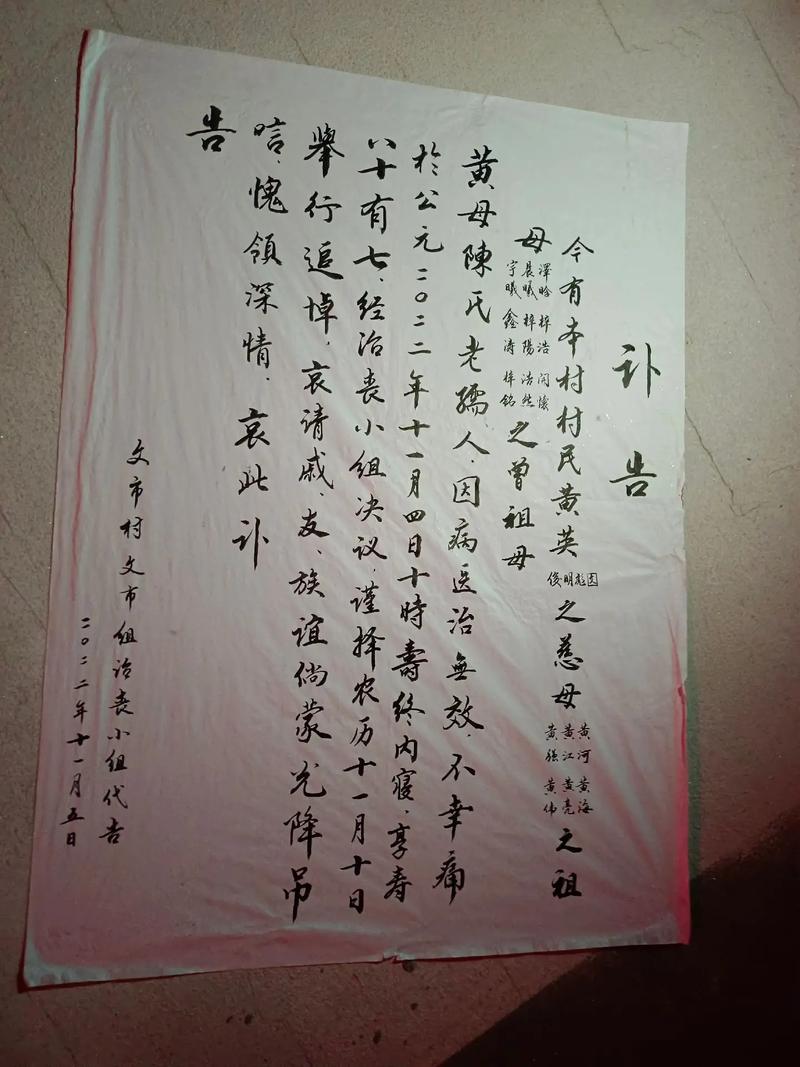 讣告
今有本村村民黄英俊明彪国之慈母黄河黄海黄江黄亮黄强黄伟之祖
母澤晗梓浩晨曦梓陽浩然宇曦鑫濤梓銘之曾祖母
黄母陳氏老孺人因病医治無效、不幸痛
於公元二〇二二年十一月四日十時壽終内寝、享寿
八十有七、经治丧小组决议、谨择农历十一月十日
舉行追悼、哀请戚、友、族誼倘蒙光降吊
唁、愧領深情、哀此讣
告
文市村文市组治丧小组代告
二〇二二年十一月五日